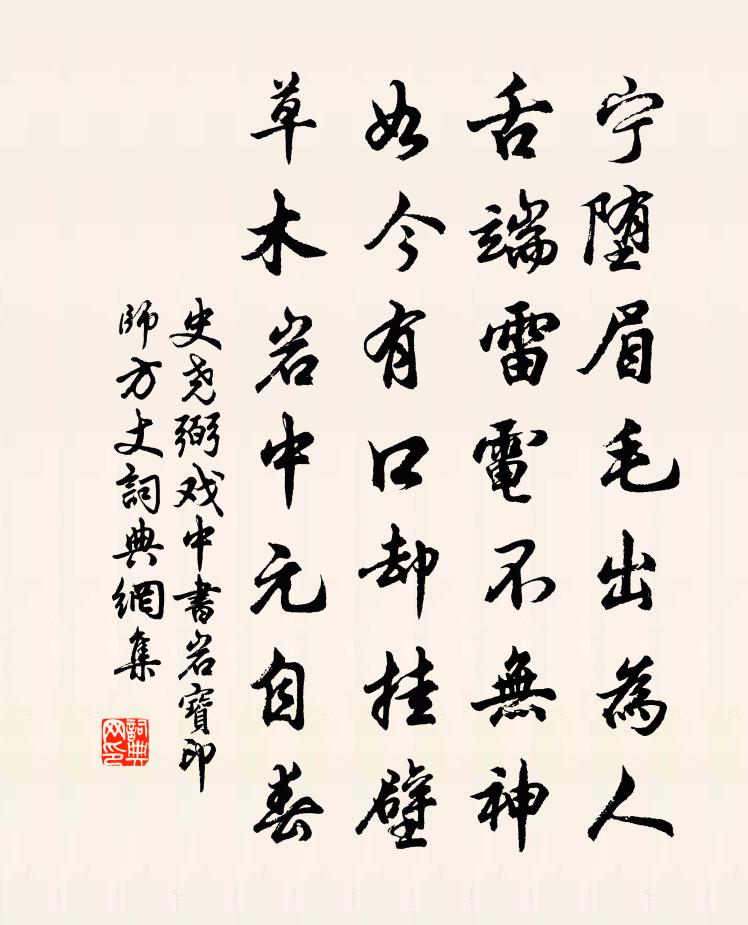 宁堕眉毛出為人
舌端雷電不無神
如今有口却挂壁
草木岩中元自春
史尧弼戏中書岩寶印
師方丈詞典網集
詞典
网印